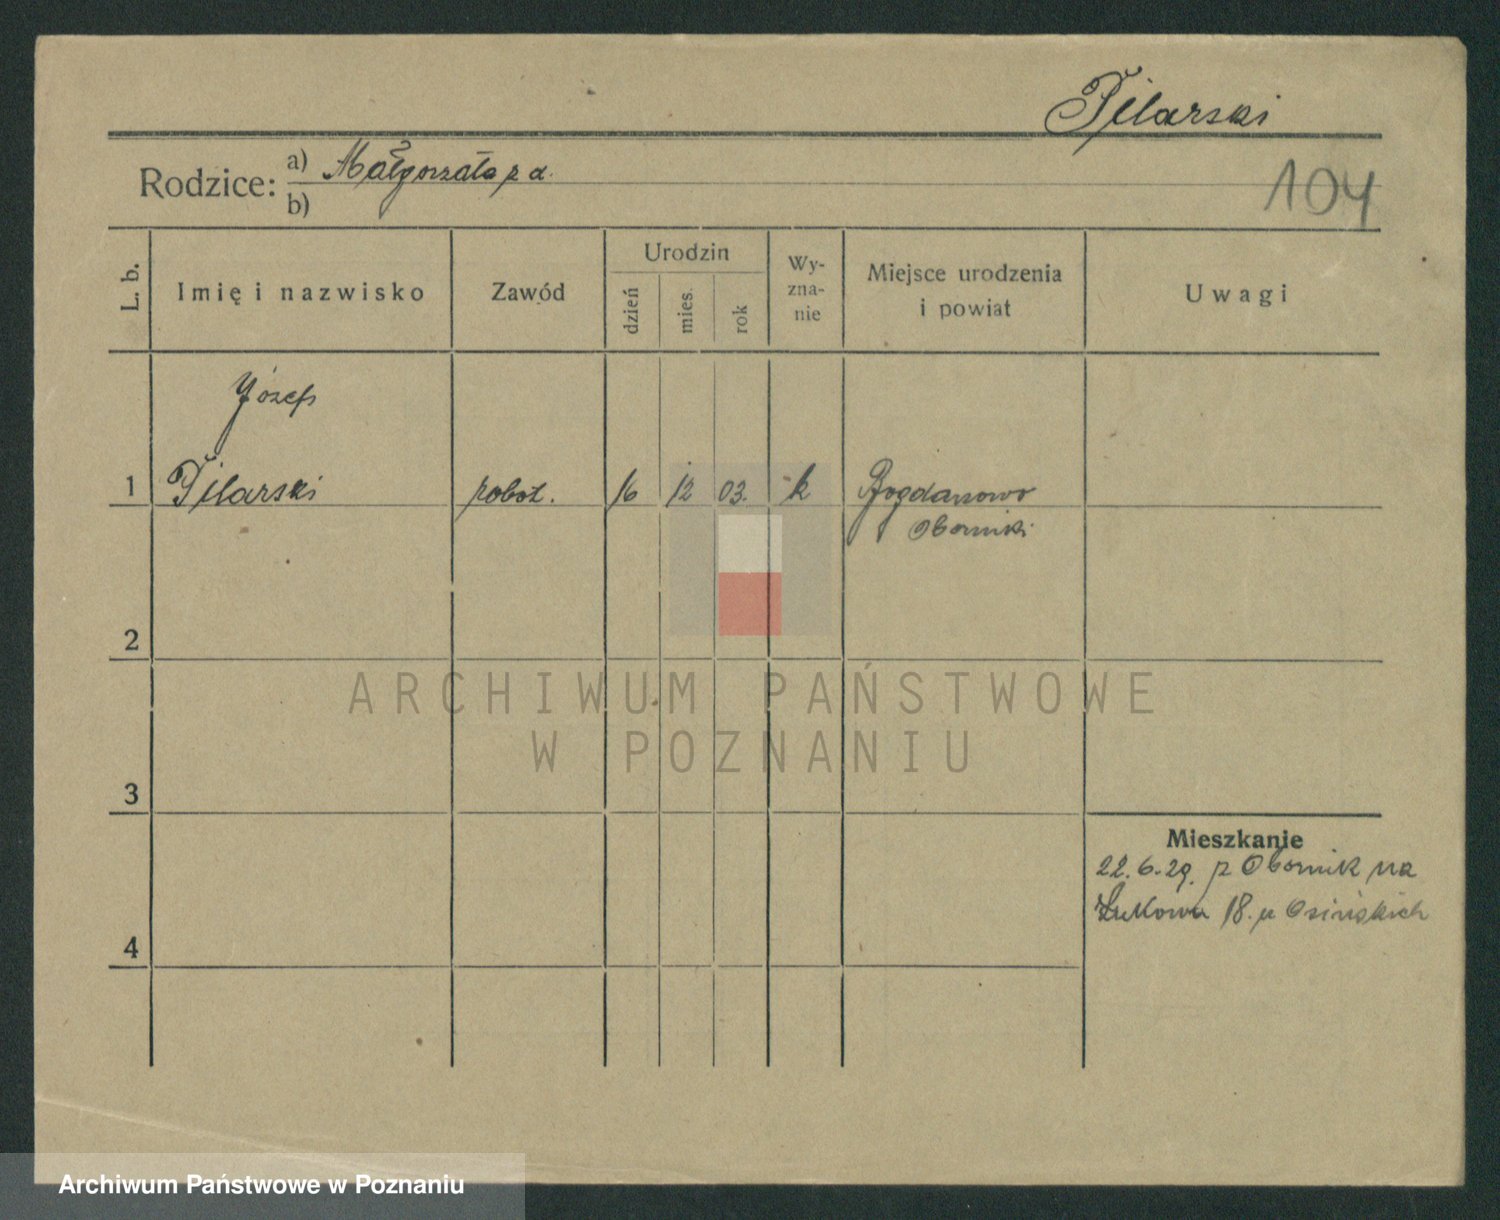 Pilarski
Rodzice: a) Małgorzata z d.
b)
104
L. b.
Imię i nazwisko
Zawód
Urodzin
dzień
mies.
rok
Wy-
zna-
nie
Miejsce urodzenia
i powiat
Uwagi
Józef
1 Pilarski robot. 16 12 03. k Bogdanowo
Oborniki
2
3
4
Mieszkanie
22.6.29. z Obornik na
18. u Osińskich
ARCHIWUM PAŃSTWOWE
W POZNANIU
Archiwum Państwowe w Poznaniu